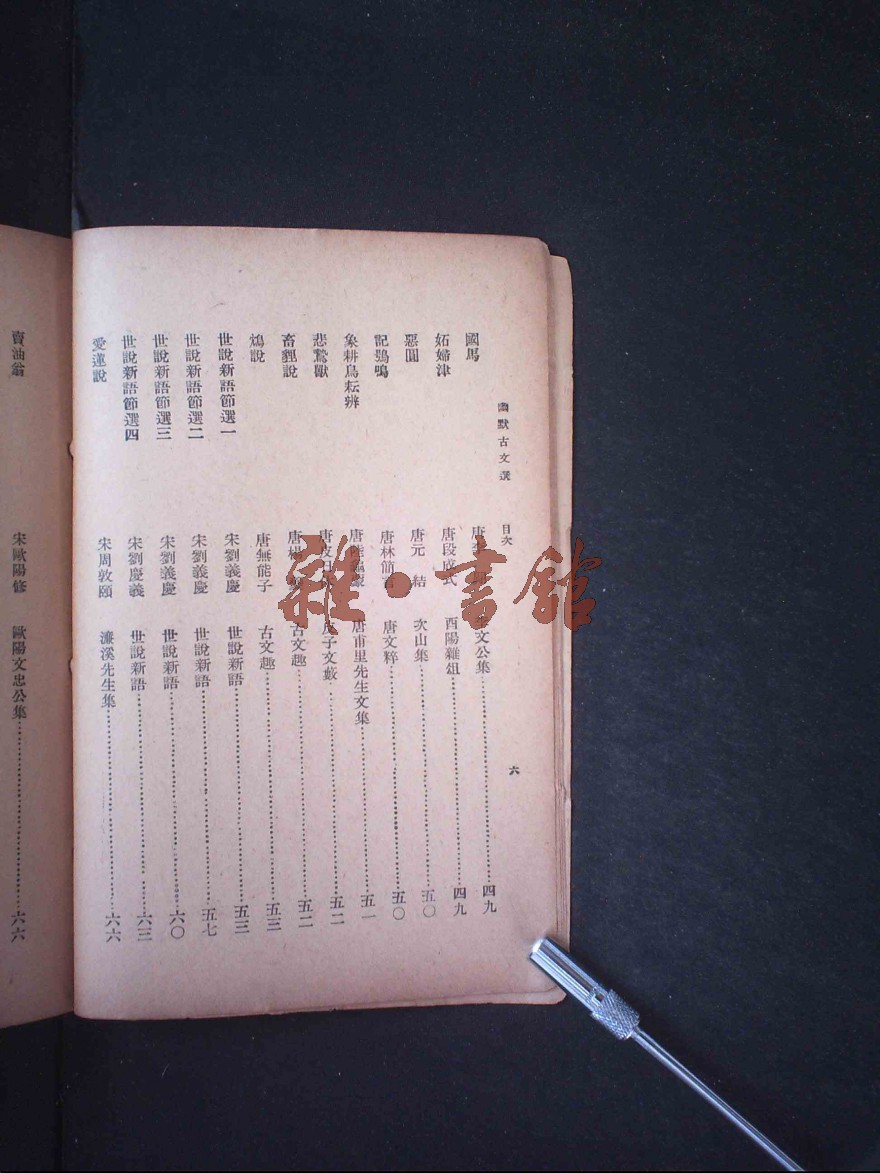 幽默古文選 目次 六
國馬 唐李 文公集 四九
妬婦津 唐段成式 酉陽雜俎 四九
惡圓 唐元結 次山集 五〇
記鵶鳴 唐林簡言 唐文粹 五〇
象耕鳥耘辨 唐陸龜蒙 唐甫里先生文集 五一
悲鷙獸 唐皮日 皮子文藪 五二
畜貍說 唐楊 古文趣 五二
鴆說 唐無能子 古文趣 五三
世說新語節選一 宋劉義慶 世說新語 五三
世說新語節選二 宋劉義慶 世說新語 五七
世說新語節選三 宋劉慶義 世說新語 六〇
世說新語節選四 宋劉慶義 世說新語 六三
愛蓮說 宋周敦頤 濂溪先生集 六六
賣油翁 宋歐陽修 歐陽文忠公集 六六
雜·書館